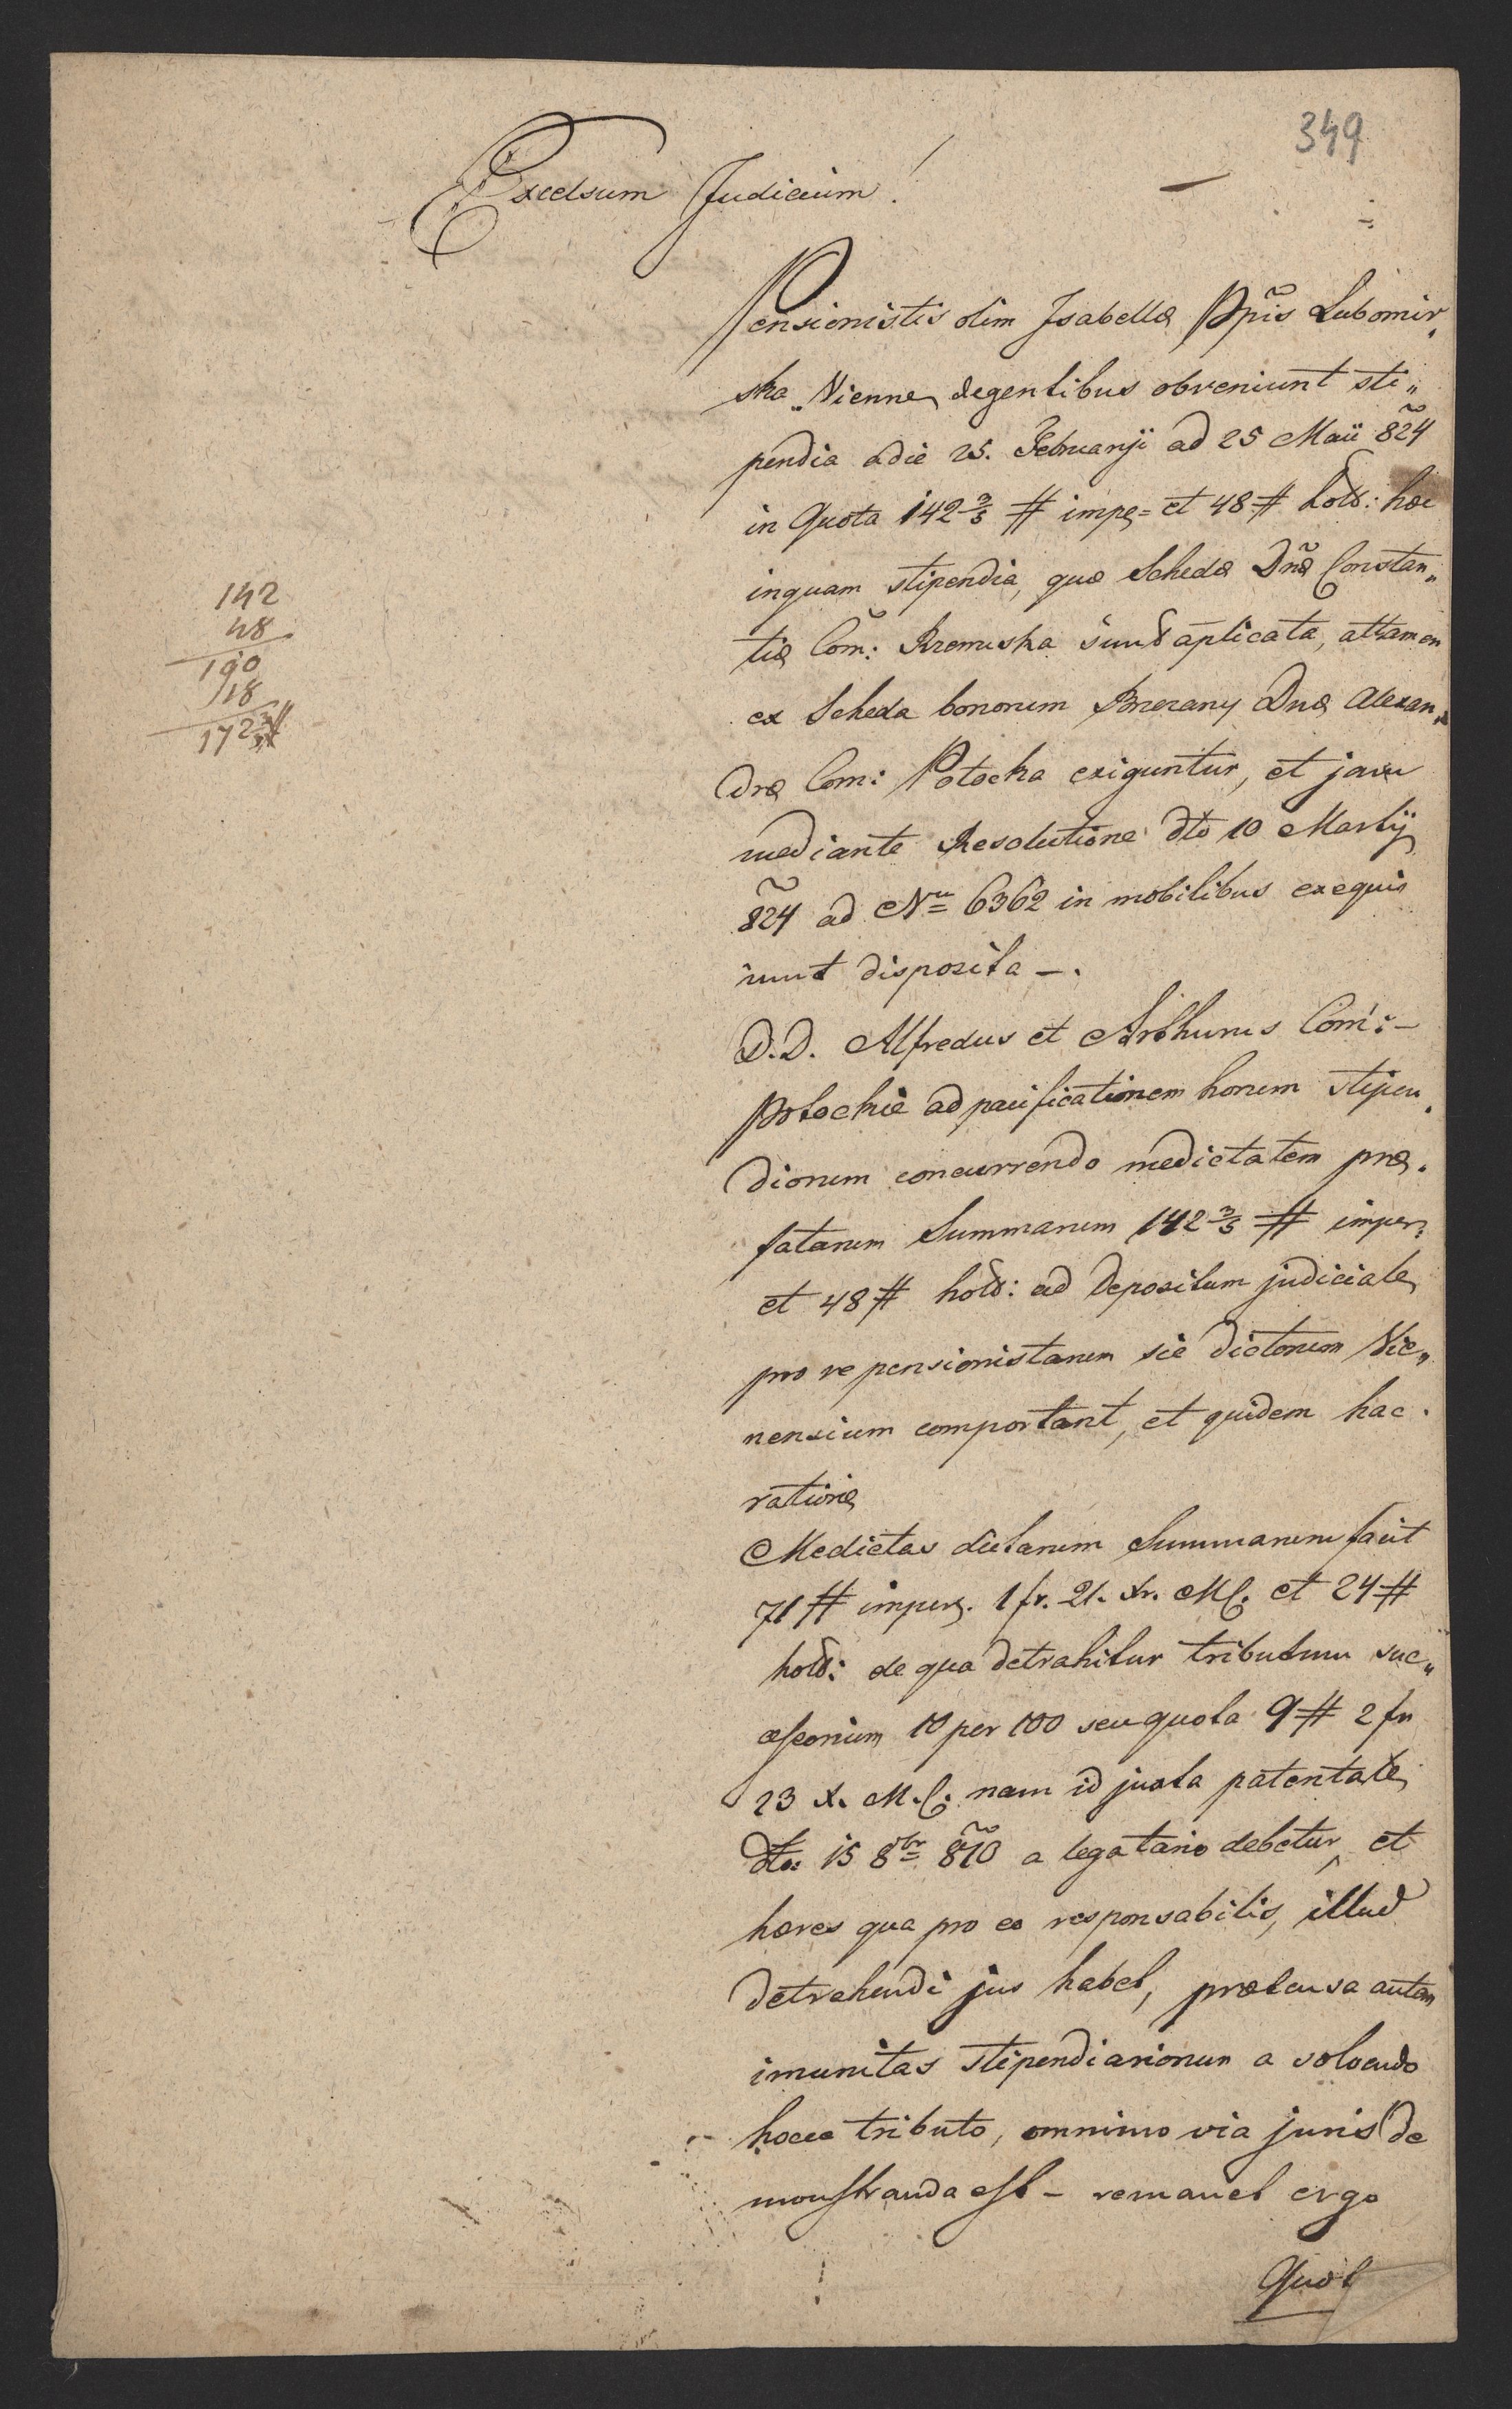 349
Excelsum Judicium!
Pensionistis olim Isabellæ Ppĩs Lubomir„
ska Viennæ degentibus obveniunt sti„
pendia a die 25. Februarji ad 25 Maii 824
in Quota 142 3/5 # impe= et 48 # hold: hæc
inquam stipendia, quæ Schedæ Dnæ Constan„
tiæ Com: Rzewuska sunt aplicata, attamen
ex Scheda bonorum Brzezany Dnæ Alexan„
dræ Com: Potocka exiguntur, et jam
mediante Resolutione dto 10 Martij
824 ad Nr= 6362 in mobilibus exequi
sunt disposita –.
D.D. Alfredus et Arthurus Com: –
Potockie ad pacificationem horum stipen„
diorum concurrendo medietatem præ„
fatarum Summarum 142 3/5 # imper:
et 48 # hold: ad Depositum judiciale
pro re pensionistarum sic dictorum Vie„
nensium comportant, et quidem hac
ratione
Medietas dictarum Summarum facit
71 # imper. 1 fr. 21. xr. M.C. et 24 #
hold: de qua detrahitur tributum suc„
cessorium 10 per 100 seu quota 9 # 2 fr
23 x. M.C. nam id juxta patentale
dto: 15 8br= 810 a legatario debetur, et
hæres qua pro eo responsabilis, illud
detrahendi jus habet, prætensa autem
imunitas stipendiariorum a solvendo
hocce tributo, omnino via juris de
monstranda est – remanet ergo
Quot
142
48
190
18
172